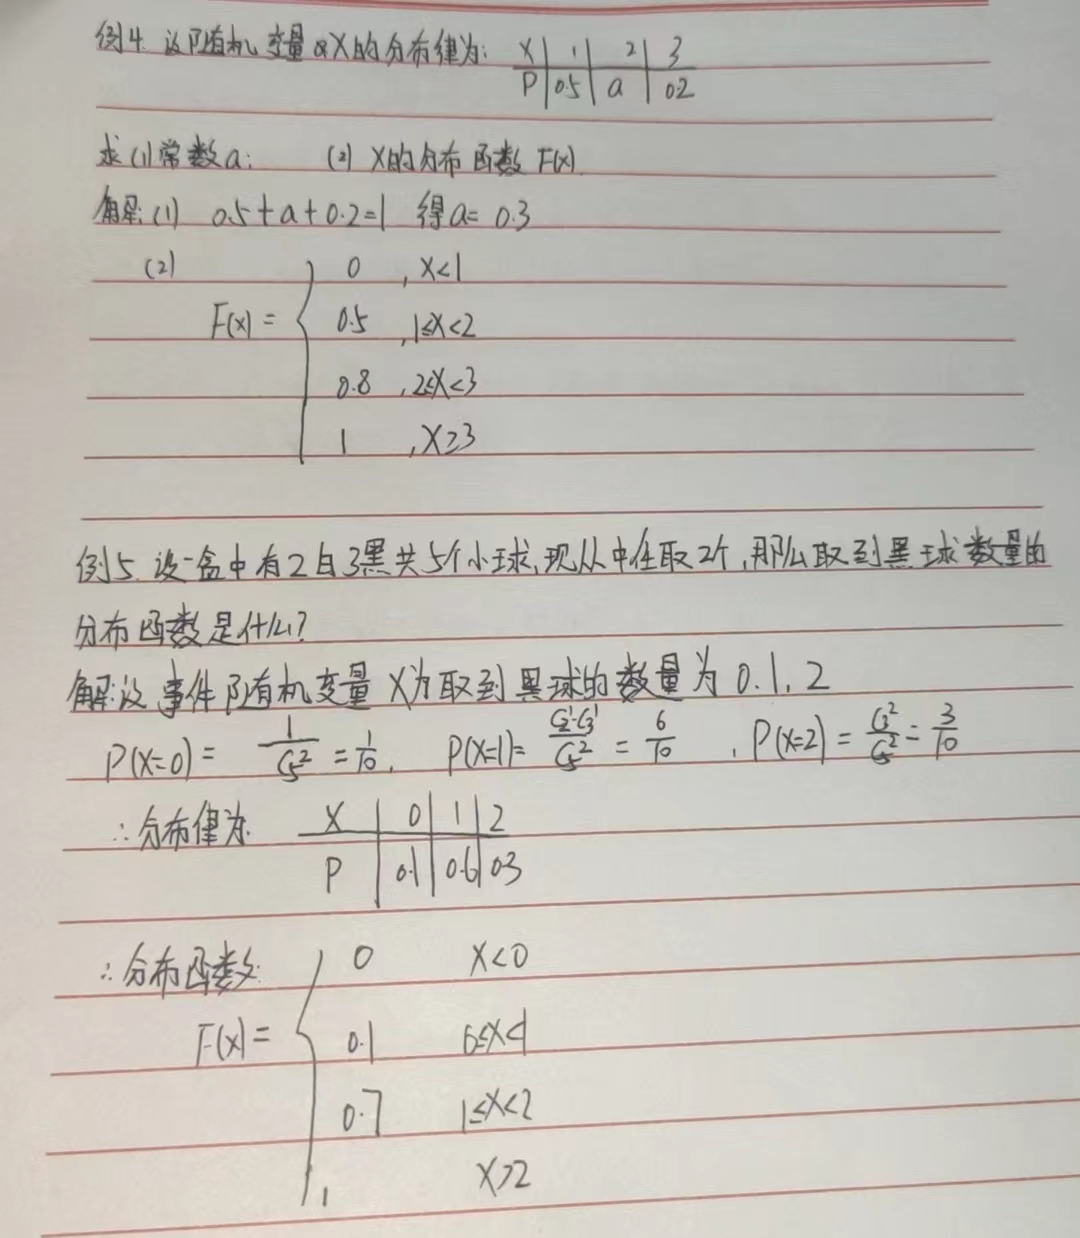 例4. 设随机变量X的分布律为: X | 1 | 2 | 3
P | 0.5 | a | 0.2
求(1)常数a; (2) X的分布函数F(x).
解:(1) 0.5+a+0.2=1 得a=0.3
(2) 0 , X<1
F(x)= 0.5 , 1≤X<2
0.8 , 2≤X<3
1 , X≥3
例5. 设一盒中有2白3黑共5个小球,现从中任取2个,那么取到黑球数量的
分布函数是什么?
解:设事件随机变量X为取到黑球的数量为0.1.2
P(X=0)= 1/C₅² = 1/10, P(X=1)= C₂¹·C₃¹/C₅² = 6/10, P(X=2)= C₃²/C₅² = 3/10
∴分布律为: X | 0 | 1 | 2
P | 0.1 | 0.6 | 0.3
∴分布函数: 0 X<0
F(x)= 0.1 0≤X<1
0.7 1≤X<2
1 X>2